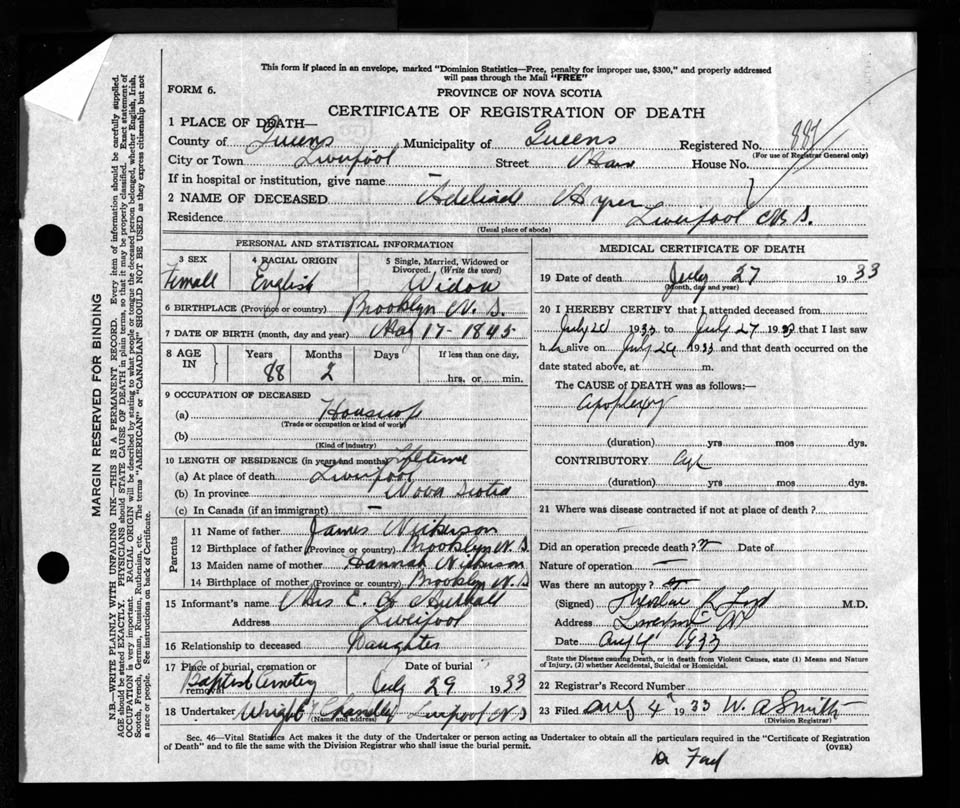 This form if placed in an envelope, marked "Dominion Statistics—Free, penalty for improper use, $300," and properly addressed
will pass through the Mail "FREE"
FORM 6.
PROVINCE OF NOVA SCOTIA
CERTIFICATE OF REGISTRATION OF DEATH
1 PLACE OF DEATH—
County of Queens Municipality of Queens Registered No. 887
(For use of Registrar General only)
City or Town Liverpool Street Main House No.
If in hospital or institution, give name —
2 NAME OF DECEASED Adeliade
Residence Liverpool N. S.
(Usual place of abode)
PERSONAL AND STATISTICAL INFORMATION
3 SEX
Female
4 RACIAL ORIGIN
English
5 Single, Married, Widowed or
Divorced. (Write the word)
Widow
6 BIRTHPLACE (Province or country) Brooklyn N. S.
7 DATE OF BIRTH (month, day and year) May 17 - 1845
8 AGE
IN
Years
88
Months
2
Days
If less than one day,
hrs. or min.
9 OCCUPATION OF DECEASED
(a) Housework
(Trade or occupation or kind of work)
(b)
(Kind of industry)
10 LENGTH OF RESIDENCE (in years and months) Lifetime
(a) At place of death Liverpool
(b) In province Nova Scotia
(c) In Canada (if an immigrant) —
Parents
11 Name of father James Nickerson
12 Birthplace of father (Province or country) Brooklyn N. S
13 Maiden name of mother Hannah Nickerson
14 Birthplace of mother (Province or country) Brooklyn N. S
15 Informant's name Mrs E.
Address Liverpool
16 Relationship to deceased Daughter
17 Place of burial, cremation or
removal Baptist Cemetery
Date of burial
July 29 1933
18 Undertaker Wright & Chandler Liverpool N S
(Name and address)
MEDICAL CERTIFICATE OF DEATH
19 Date of death July 27 1933
(Month, day and year)
20 I HEREBY CERTIFY that I attended deceased from
July 1933 to July 27 1933 that I last saw
h alive on July 26 1933 and that death occurred on the
date stated above, at m.
The CAUSE of DEATH was as follows:—
apoplexy
(duration) yrs mos dys.
CONTRIBUTORY Age
(duration) yrs mos dys.
21 Where was disease contracted if not at place of death?
—
Did an operation precede death? Date of
Nature of operation —
Was there an autopsy?
(Signed) M.D.
Address Liverpool
Date Aug 4 1933
State the Disease causing Death, or in death from Violent Causes, state (1) Means and Nature
of Injury, (2) whether Accidental, Suicidal or Homicidal.
22 Registrar's Record Number
23 Filed Aug 4 1933 W. A Smith
(Division Registrar)
Sec. 46—Vital Statistics Act makes it the duty of the Undertaker or person acting as Undertaker to obtain all the particulars required in the "Certificate of Registration
of Death" and to file the same with the Division Registrar who shall issue the burial permit.
(OVER)
Dr Ford
MARGIN RESERVED FOR BINDING
N.B.—WRITE PLAINLY WITH UNFADING INK—THIS IS A PERMANENT RECORD. Every item of information should be carefully supplied.
AGE should be stated EXACTLY. PHYSICIANS should STATE CAUSE OF DEATH in plain terms, so that it may be properly classified. Exact statement of
OCCUPATION is very important. RACIAL ORIGIN will be described by stating to what people or tongue the deceased person belonged, whether English, Irish,
Scotch, French, German, Russian, Ruthenian, etc. The terms "AMERICAN" or "CANADIAN" SHOULD NOT BE USED as they express citizenship but not
a race or people. See instructions on back of Certificate.